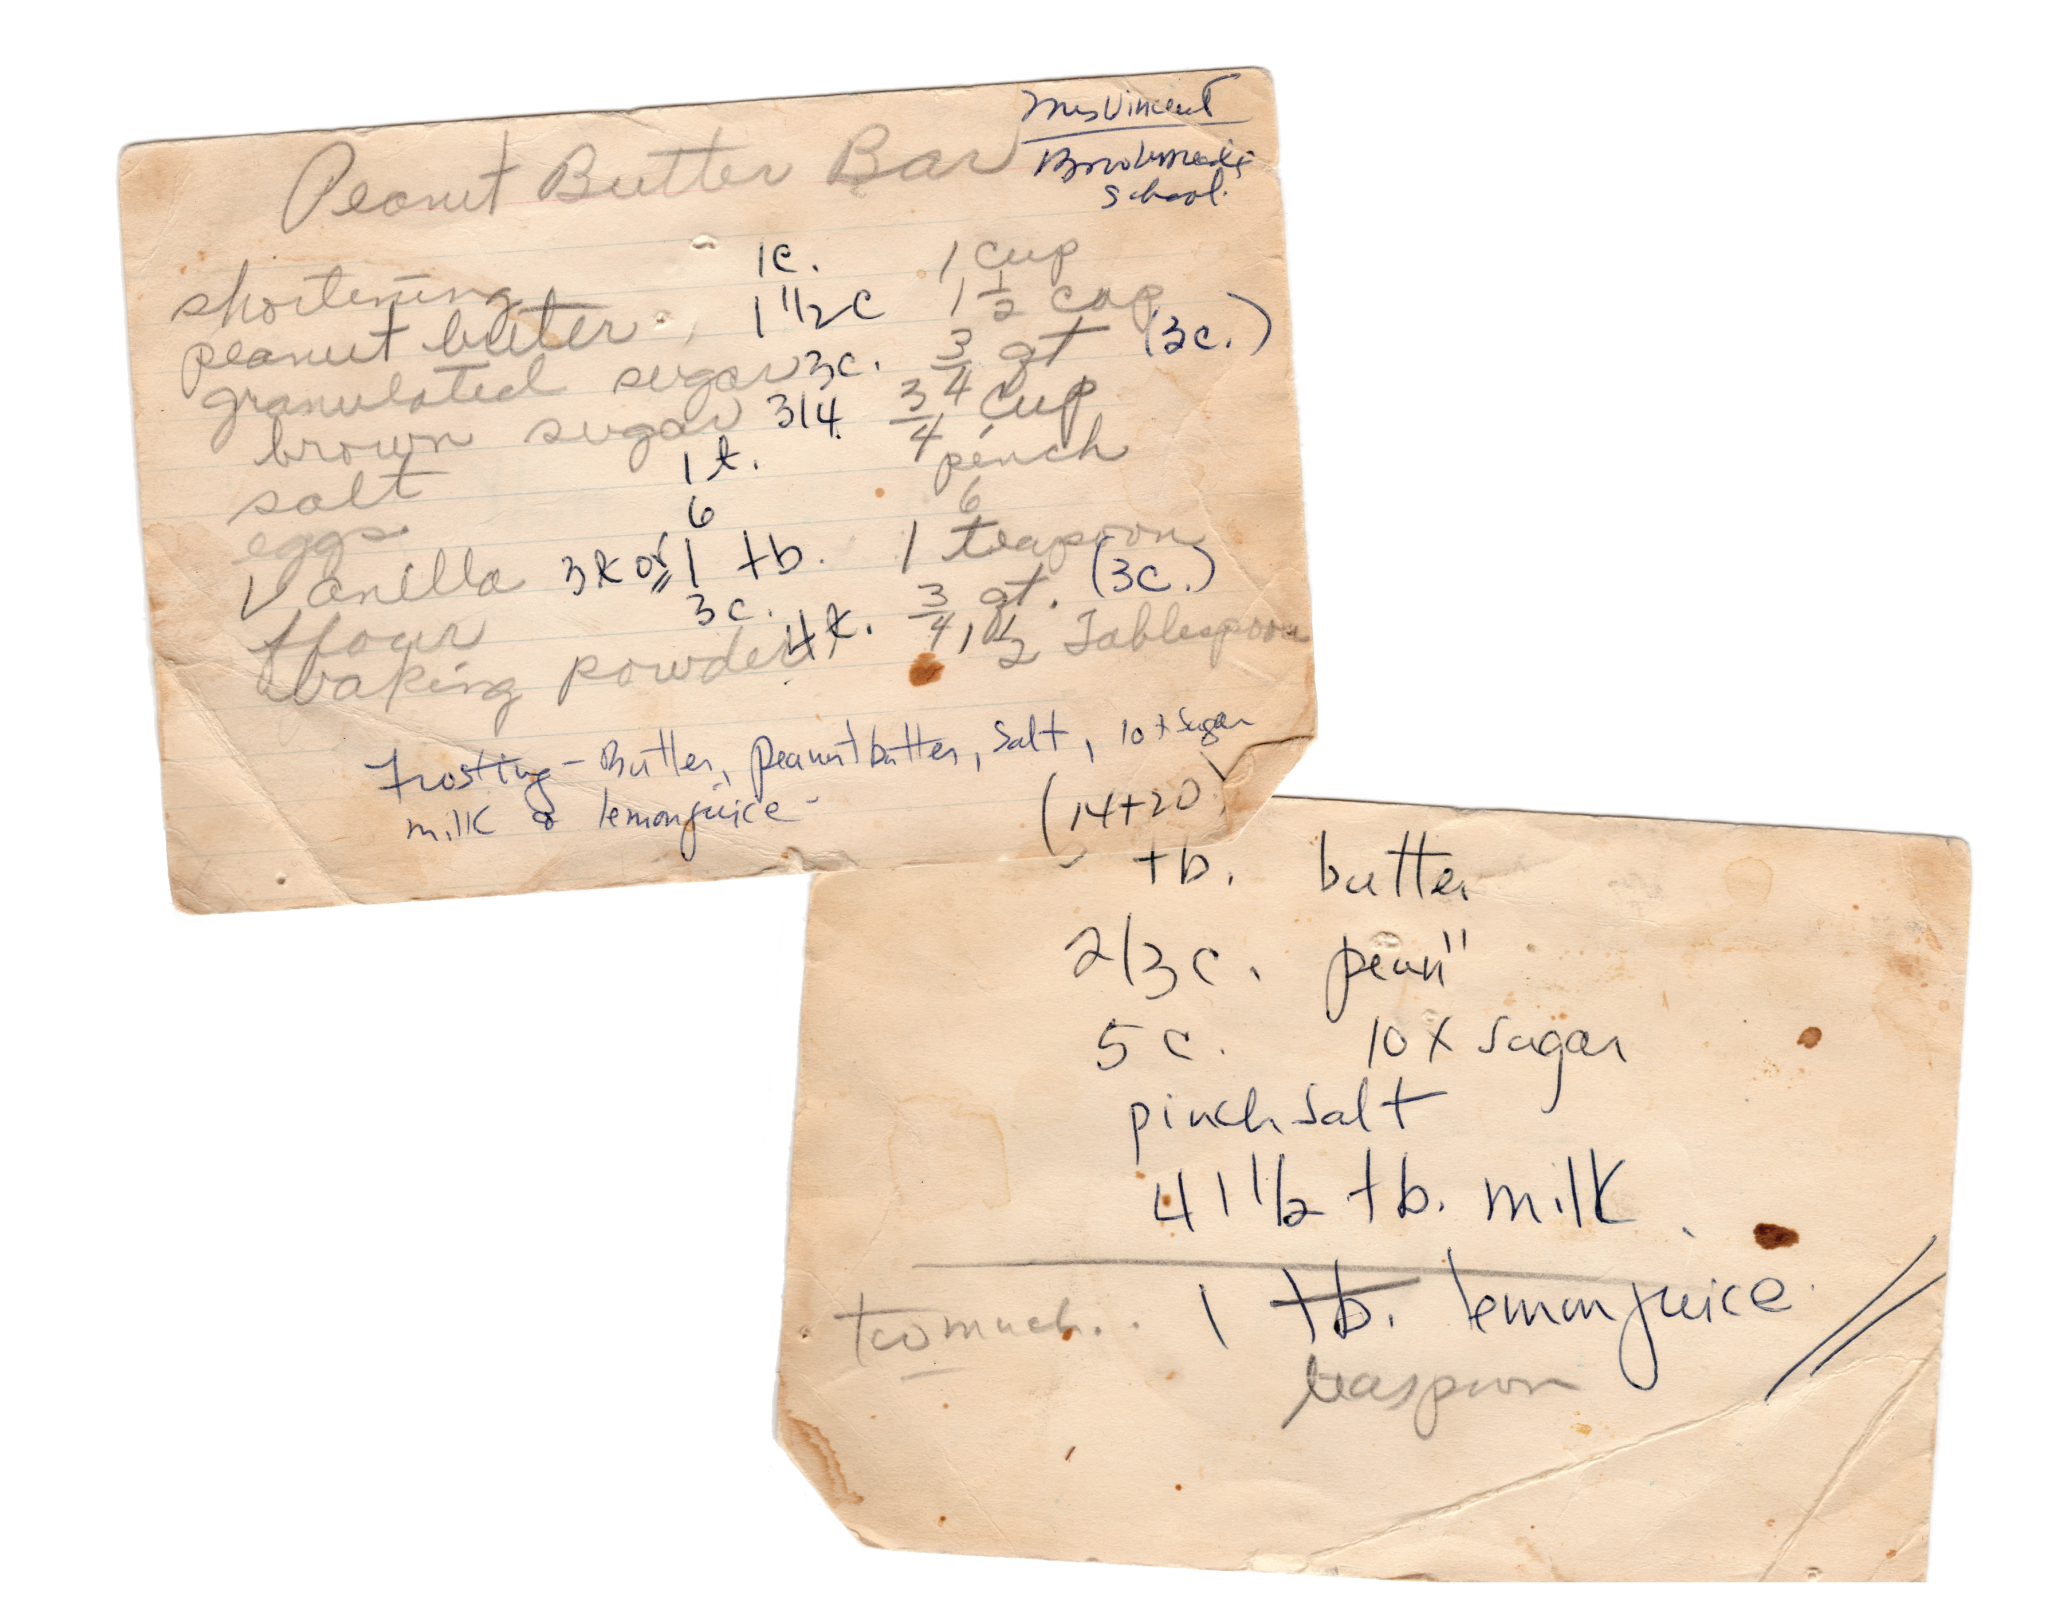 Peanut Butter Bar
Mrs Vincent
School.
shortening 1c. 1 cup
peanut butter 1 1/2 c 1 1/2 cup
granulated sugar 3c. 3/4 qt (3c.)
brown sugar 3/4 3/4 cup
salt 1 t. pinch
eggs 6 6
Vanilla 3t or 1 tb. 1 teaspoon
flour 3c. 3/4 qt. (3c.)
baking powder 4t. 1 1/2 Tablespoon
Frosting - Butter, peanut butter, salt, 10x sugar
milk & lemon juice -
(14+20)
tb. butter
2/3 c. pean"
5 c. 10x sugar
pinch salt
4 1 1/2 tb. milk.
too much.. 1 tb. lemon juice
teaspoon